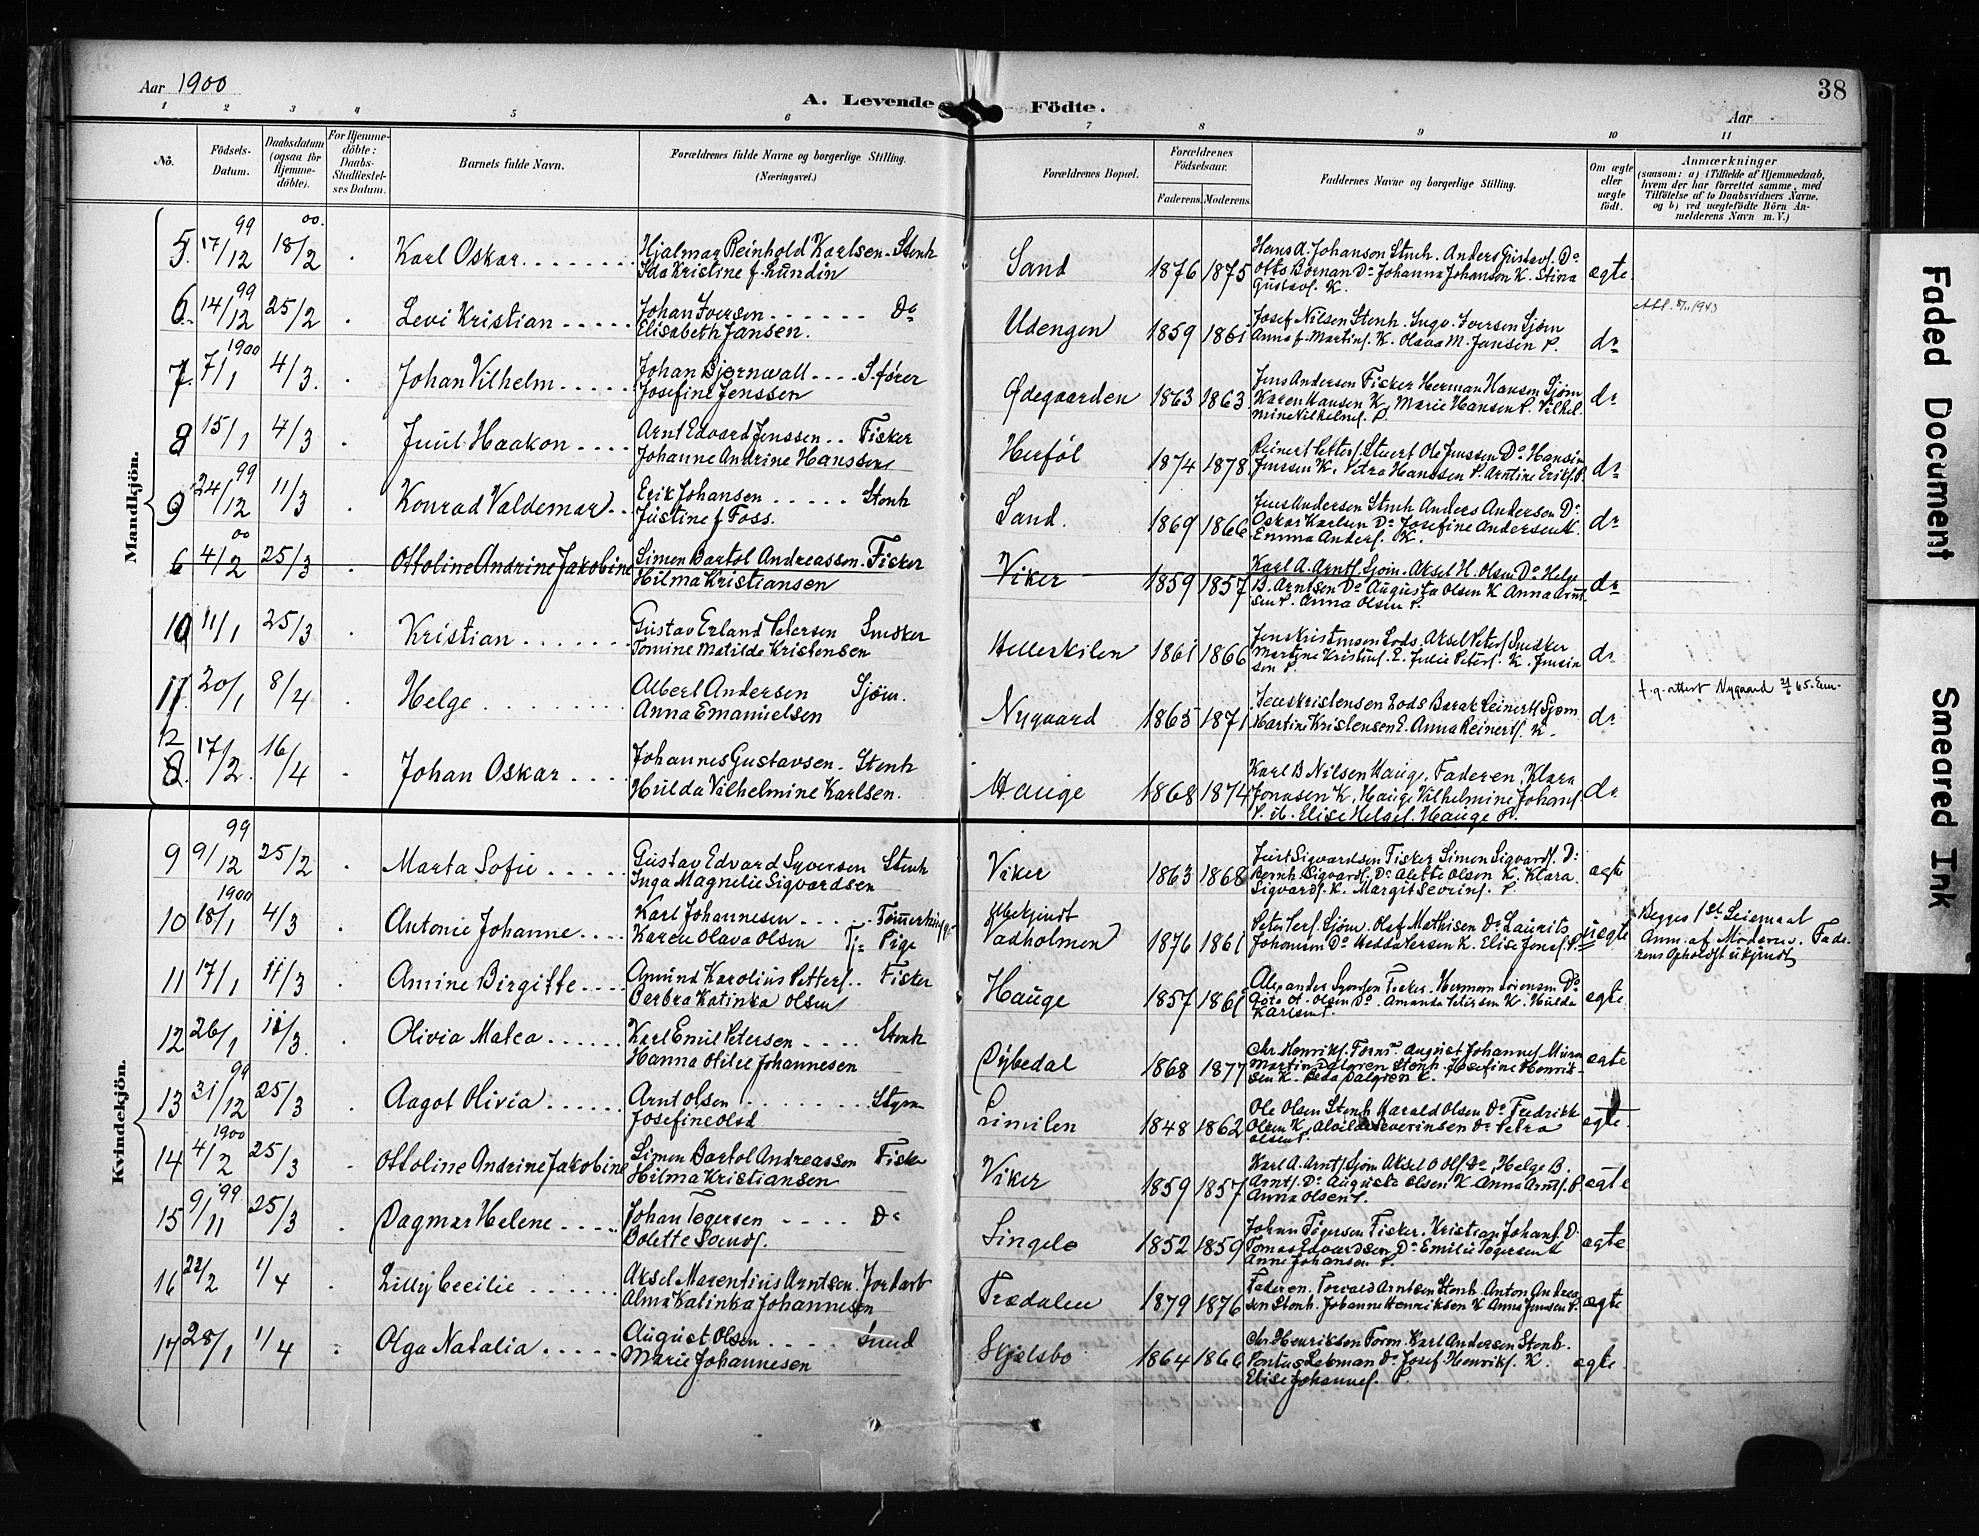 Aar 1900
38
A. Levende Födte.
Aar
1 2 3 4 5 6 7 8 9 10 11
No.
Födsels-Datum.
Daabsdatum (ogsaa for Hjemmedöbte).
For Hjemmedöbte: Daabs-Stadfæstelses Datum.
Barnets fulde Navn.
Forældrenes fulde Navne og borgerlige Stilling. (Næringsvei.)
Forældrenes Bopæl.
Forældrenes Födselsaar.
Faderens. Moderens.
Faddernes Navne og borgerlige Stilling.
Om ægte eller uægte födt.
Anmærkninger
(saasom: a) i Tilfælde af Hjemmedaab,
hvem der har forrettet samme, med
Tilföielse af to Daabsvidners Navne,
og b) ved uægtefödte Börn An-
melderens Navn m. V.)
Mandkjön.
5. 17/12 99 18/2 00. Karl Oskar Hjalmar Reinhold Karlsen. Stenh Sand 1876 1875 Hans A. Johanson Stenh. Anders Gustavs. Do ægte
Ida Kristine f. Lundin Otto Bornan Do Johanna Johanson K. Stina
Gustavs. K.
6. 14/12 99 25/2 Levi Kristian Johan Iversen Do Udengen 1859 1861 Josef Nilsen Stenh. Ingv. Iversen Sjøm do
Elisabeth Jansen. Anna f. Martins. K. Olava M. Jansen P.
7. 7/1 1900 4/3. Johan Vilhelm Johan Bjørnwall S. fører Ødegaarden 1863 1863 Jens Andersen Fisker Herman Hansen Sjøm do
Josefine Jenssen Karen Hansen K. Marie Hansen P. Vilhel
mine Vilhelms. P.
8 15/1 4/3 Juul Haakon Arnt Edvard Jenssen Fisker Herføl 1874 1878 Reinert Petters. Stuert Ole Jenssen Do Hansin do
Johanne Andrine Hanssen Jenssen K. Petra Hanssen P. Arntine Eriks. P.
9 24/12 99 11/3 Konrad Valdemar Erik Johansen Stenh Sand. 1869 1866 Jens Andersen Stenh Anders Andersen Do do
Justine f Foss. Oskar Karlsen Do Josefine Andersen K.
Emma Anders. K.
6 4/2 00 25/3 Ottoline Andrine Jakobine Simen Bartol Andreassen Fisker Viker 1859 1857 Karl A. Arnts. Sjøm. Aksel H. Olsen Do Helge do
Hilma Kristiansen B. Arntsen Do Augusta Olsen K Anna Arnt
sen P. Anna Olsen P.
10 11/1 25/3 Kristian Gustav Erland Petersen Snedker Hellerkilen 1861 1866 Jens Kristensen Lods. Aksel Peters. Snedker do
Tomine Matilde Kristensen Martine Kristens. E. Julie Peters. K.
11. 20/1 8/4 Helge Albert Andersen Sjøm. Nygaard 1865 1871 Jens Kristensen Lods Barak Reinerts Sjøm do
Anna Emanuelsen Martine Kristensen E. Anna Reinerts. K.
12 17/2 16/4 Johan Oskar Johannes Gustavsen Stenh Hauge 1868 1874 Karl B Nilsen Hauge, Faderen, Klara do
Hulda Vilhelmine Karlsen. Jonasen K. Hauge Vilhelmine Johans.
Elise Helges. Hauge P.
Kvindekjön.
9 9/12 99 25/2 Marta Sofie Gustav Edvard Syversen Stenh Viker 1863 1868 Juul Sigvardsen Fisker Simen Sigvards. Do ægte
Inga Magnelie Sigvardsen Bernh. Sigvards. Do Alette Olsen K. Klara
Sigvards. K. Margit Severins. P
10 18/1 1900 4/3 Antonie Johanne Karl Johannesen Ubekjendt 1876 1861 uægte Begges 1st Leiermaal
Karen Olava Olsen Tj: Pige Vadholmen Johannsen Do Hedda Persen K. Elise Jonas. P. Anm. af Moderen. Fade-
rens Opholdst ukjendt
11 17/1 11/3 Amine Birgitte Amund Karolius Petters. Fisker Hauge 1857 1861 Alexander Syversen Fisker. Herman Sörensen Do ægte
Berbra Katinka Olsen Gota A. Olsen Do Amanda Petersen K. Hulda
Karlsen P.
12 26/1 11/3. Olivia Matea Karl Emil Petersen Stenh Dybedal 1868 1877 Chr. Henriks. Form. August Johannes. Murer ægte
Hanna Otilie Johannesen Martin Dalgren Stenh. Josefine Henrik-
sen K. Beda Dalgren P.
13 31/12 99 25/3 Aagot Olivia Arnt Olsen Stym Limilen 1848 1862 Ole Olsen Stenh Harald Olsen Do Fredrikk ægte
Josefine Olsd Olsen K, Severinsen Do Petra
Olsen P.
14 4/2 1900 25/3 Ottoline Andrine Jakobine Simen Bartol Andreassen Fisker Viker 1859 1857 Karl A. Arnts. Sjøm Aksel O Ols. Do, Helge B. ægte
Hilma Kristiansen Arnts. Do Augusta Olsen K Anna Arnts. P
Anna Olsen P.
15 9/11 99 25/3 Dagmar Helene Johan Tøgersen Do Singelø 1852 1859 Johan Tøgersen Fisker. Kristian Johans. Do ægte
Bolette Svends. Tomas Edvardsen Do Emilie Tøgersen K
Anne Johansen P.
16 22/2 1/4 Lilly Cecilie Aksel Marentius Arntsen. Jordarb Trædalen 1879 1876 Faderen. Torvald Arntsen Stenh. Anton Andrea ægte
Alma Katinka Johannesen sen Stenh. Johanne Henriksen K Anna Jensen P.
17 28/1 1/4 Olga Natalia August Olsen Smed Skjælsbo 1864 1866 Chr. Henriksen Form. Karl Andersen Stenh. ægte
Marie Johannesen Pontus Lebman Do Josef. Henriks. K.
Elise Johannes. P.
Faded Document
Smeared Ink